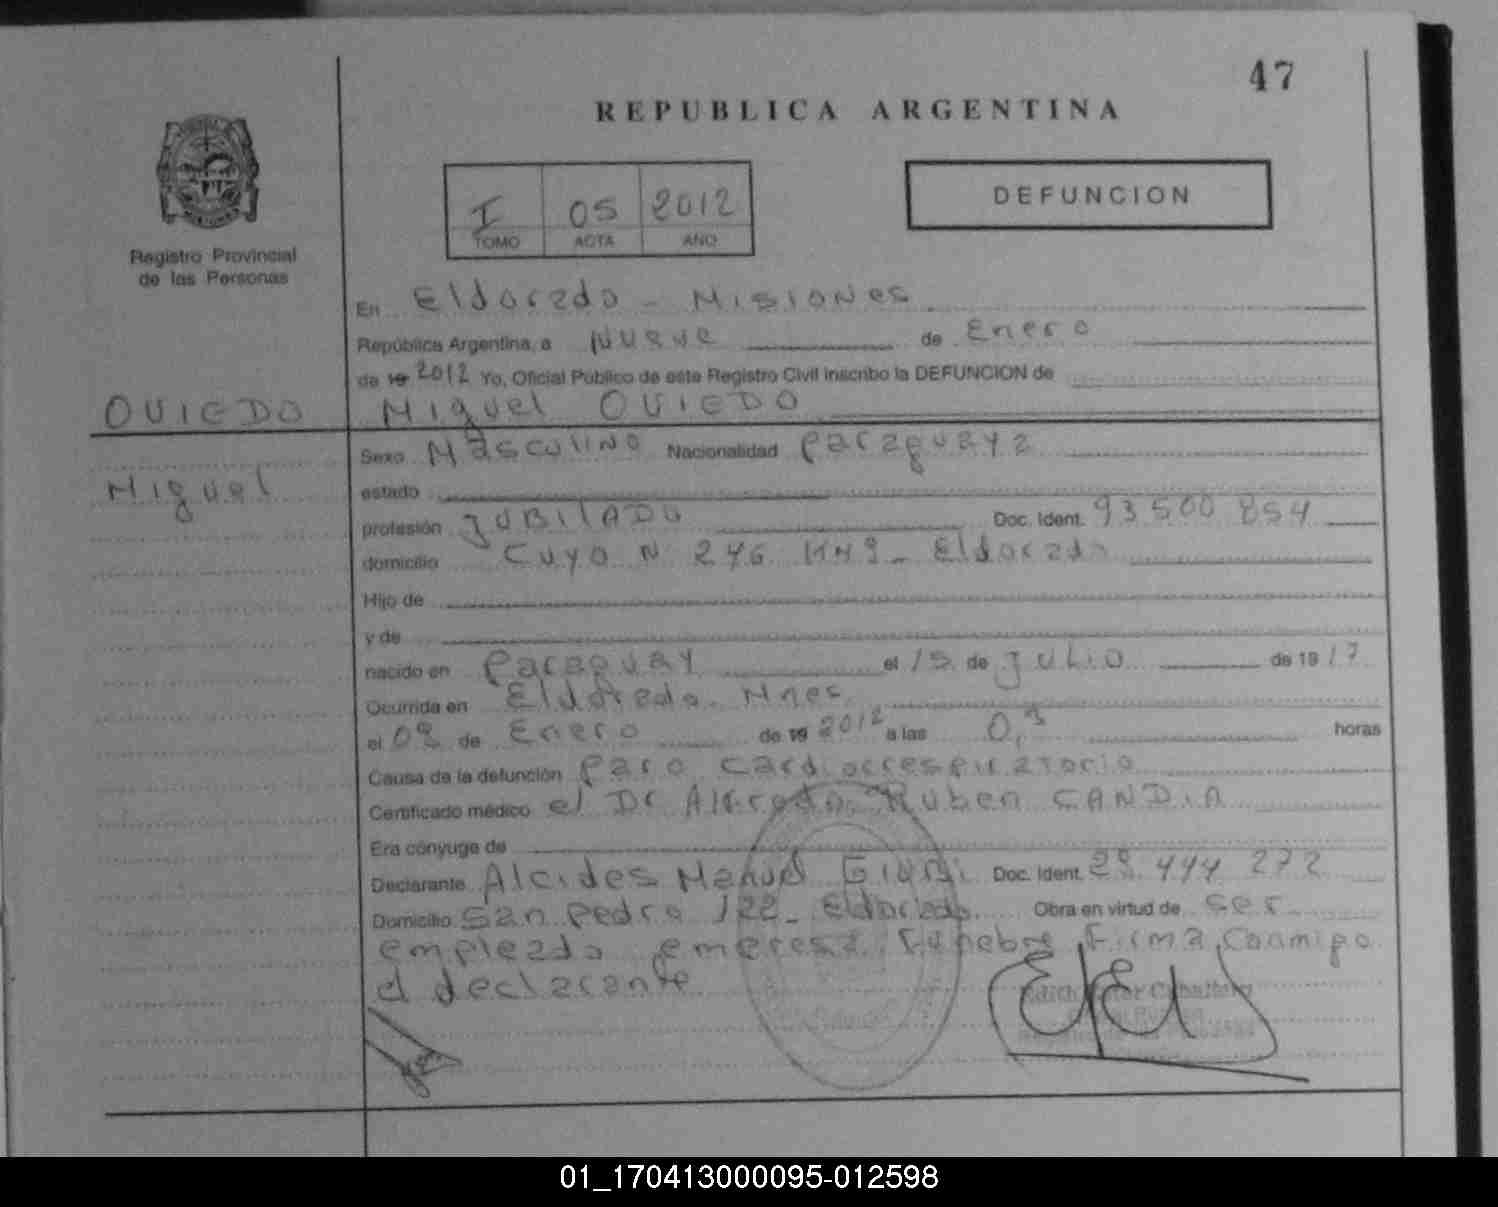 47
REPUBLICA ARGENTINA
I 05 2012
TOMO ACTA AÑO
DEFUNCION
Registro Provincial
de las Personas
En Eldorado - Misiones
República Argentina, a Nueve de Enero
de 19 2012 Yo, Oficial Público de este Registro Civil inscribo la DEFUNCION de
OVIEDO Miguel OVIEDO
Sexo Masculino Nacionalidad Paraguaya
Miguel
estado
profesión JUBILADO Doc. Ident. 93 500 854
domicilio Cuyo N 246 KM9 - Eldorado
Hijo de
y de
nacido en Paraguay el 15 de Julio de 19 17
Ocurrida en Eldorado. Mnes
el 08 de Enero de 19 2012 a las 0,3 horas
Causa de la defunción Paro cardiorrespiratorio
Certificado médico el Dr Alfredo Ruben CANDIA
Era cónyuge de
Declarante Alcides Manuel Doc. Ident. 29 444 272
Domicilio San Pedro 122 - Eldorado Obra en virtud de ser
empleado empresa Funebre, Firma conmigo
el declarante
Edith Caballero
01_170413000095-012598